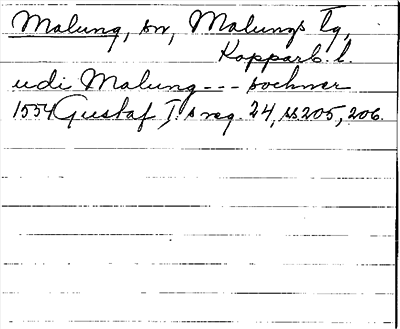 Malung, sn, Malungs tg,
Kopparb. l.
udi Malung --- sochner
1554 Gustaf I:s reg. 24, ss 205, 206.